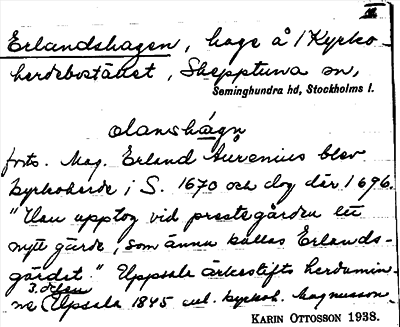 Erlandshagen, hage å / Kyrko-
herdebostället, Skepptuna sn,
Seminghundra hd, Stockholms l.
olanshågn
forts. Mag. Erland Aurenius blev
kyrkoherde i S. 1670 och dog där 1696.
"Han upptog vid prestegården ett
nytt gärde, som ännu kallas Erlands-
gärdet." Uppsala ärkestifts herdamin-
ne 3. delen (Upsala 1845 Magnusson
KARIN OTTOSSON 1938.